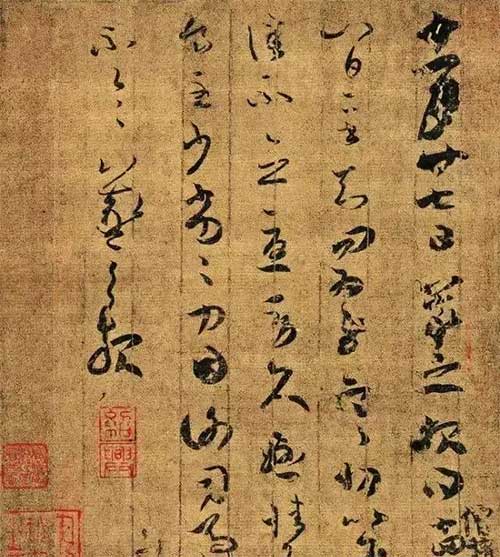 十一月廿七日羲之報得十四
十八日二書知問為慰寒切比
各佳不念憂勞久懸情
食甚少劣劣力因謝司馬
不一一羲之報
紹興